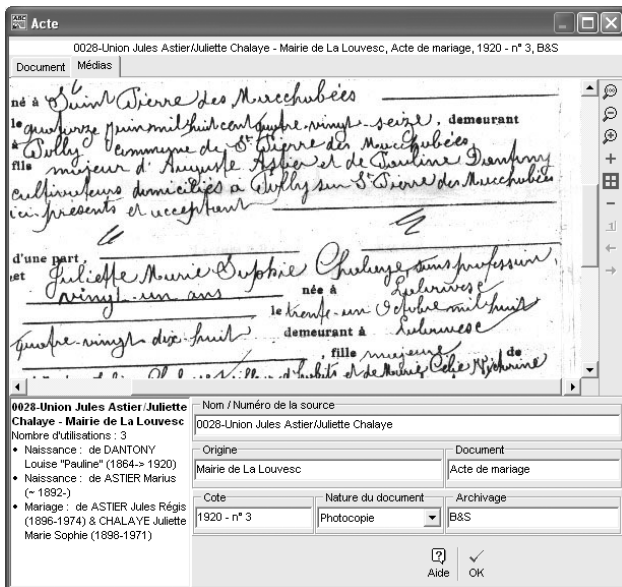 Acte
0028-Union Jules Astier/Juliette Chalaye - Mairie de La Louvesc, Acte de mariage, 1920 - n° 3, B&S
Document Médias
né à Saint Pierre des Macchabées
le quatorze Juin mil huit cent quatre-vingt-seize, demeurant
à commune de St Pierre des Macchabées,
fils majeur d'Auguste Astier et de Pauline Dantony
cultivateurs domiciliés à sur St Pierre des Macchabées
ici présents et acceptant
d'une part,
et Juliette Marie Sophie Chalaye, sans profession,
vingt-un ans née à Lalouvesc
le trente-un Octobre mil huit
quatre-vingt dix-huit demeurant à Lalouvesc
, fille majeure de
et de Marie
0028-Union Jules Astier/Juliette
Chalaye - Mairie de La Louvesc
Nombre d'utilisations : 3
• Naissance : de DANTONY
Louise "Pauline" (1864-> 1920)
• Naissance : de ASTIER Marius
(~ 1892-)
• Mariage : de ASTIER Jules Régis
(1896-1974) & CHALAYE Juliette
Marie Sophie (1898-1971)
Nom / Numéro de la source
0028-Union Jules Astier/Juliette Chalaye
Origine Document
Mairie de La Louvesc Acte de mariage
Cote Nature du document Archivage
1920 - n° 3 Photocopie B&S
Aide OK